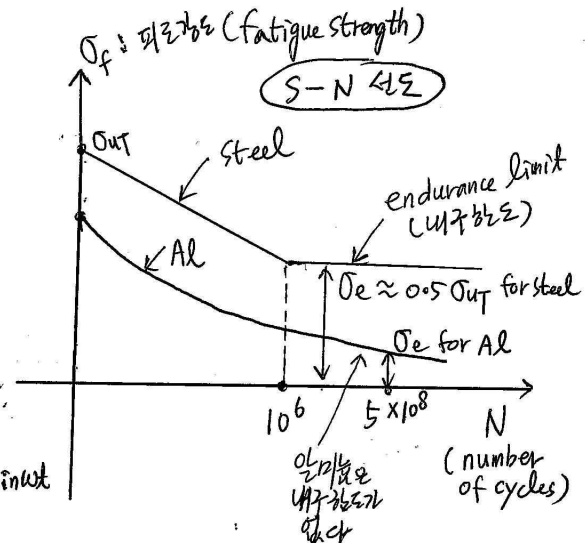 σf : 피로강도 (fatigue strength)
S-N 선도
σUT
steel
endurance limit
(내구한도)
Al
σe ≈ 0.5 σUT for steel
σe for Al
10⁶
5×10⁸
N
(number
of cycles)
알미늄은
내구한도가
없다
inwt